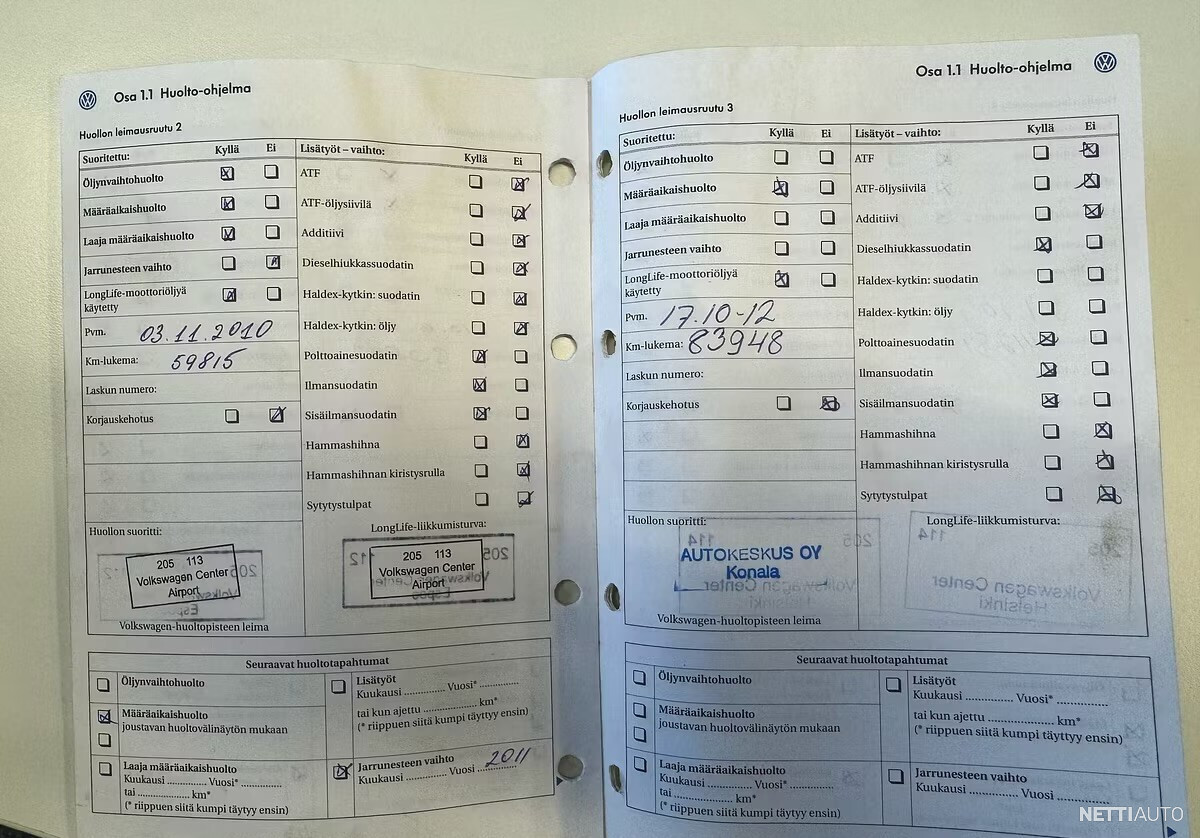 Osa 1.1 Huolto-ohjelma
Huollon leimausruutu 2
Suoritettu: Kyllä Ei
Öljynvaihtohuolto
Määräaikaishuolto
Laaja määräaikaishuolto
Jarrunesteen vaihto
LongLife-moottoriöljyä
käytetty
Pvm. 03.11.2010
Km-lukema: 59815
Laskun numero:
Korjauskehotus
Lisätyöt – vaihto: Kyllä Ei
ATF
ATF-öljysiivilä
Additiivi
Dieselhiukkassuodatin
Haldex-kytkin: suodatin
Haldex-kytkin: öljy
Polttoainesuodatin
Ilmansuodatin
Sisäilmansuodatin
Hammashihna
Hammashihnan kiristysrulla
Sytytystulpat
Huollon suoritti:
205 113
Volkswagen Center
Airport
Volkswagen-huoltopisteen leima
LongLife-liikkumisturva:
205 113
Volkswagen Center
Airport
Seuraavat huoltotapahtumat
Öljynvaihtohuolto
Määräaikaishuolto
joustavan huoltovälinäytön mukaan
Laaja määräaikaishuolto
Kuukausi ............ Vuosi* ............
tai ............ km*
(* riippuen siitä kumpi täytyy ensin)
Lisätyöt
Kuukausi ............ Vuosi* ............
tai kun ajettu ............ km*
(* riippuen siitä kumpi täytyy ensin)
Jarrunesteen vaihto
Kuukausi ............ Vuosi 2011
Osa 1.1 Huolto-ohjelma
Huollon leimausruutu 3
Suoritettu: Kyllä Ei
Öljynvaihtohuolto
Määräaikaishuolto
Laaja määräaikaishuolto
Jarrunesteen vaihto
LongLife-moottoriöljyä
käytetty
Pvm. 17.10-12
Km-lukema: 83948
Laskun numero:
Korjauskehotus
Lisätyöt – vaihto: Kyllä Ei
ATF
ATF-öljysiivilä
Additiivi
Dieselhiukkassuodatin
Haldex-kytkin: suodatin
Haldex-kytkin: öljy
Polttoainesuodatin
Ilmansuodatin
Sisäilmansuodatin
Hammashihna
Hammashihnan kiristysrulla
Sytytystulpat
Huollon suoritti:
AUTOKESKUS OY
Konala
Volkswagen-huoltopisteen leima
LongLife-liikkumisturva:
205 114
Volkswagen Center
Helsinki
Seuraavat huoltotapahtumat
Öljynvaihtohuolto
Määräaikaishuolto
joustavan huoltovälinäytön mukaan
Laaja määräaikaishuolto
Kuukausi ............ Vuosi* ............
tai ............ km*
(* riippuen siitä kumpi täytyy ensin)
Lisätyöt
Kuukausi ............ Vuosi* ............
tai kun ajettu ............ km*
(* riippuen siitä kumpi täytyy ensin)
Jarrunesteen vaihto
Kuukausi ............ Vuosi ............
NETTIAUTO